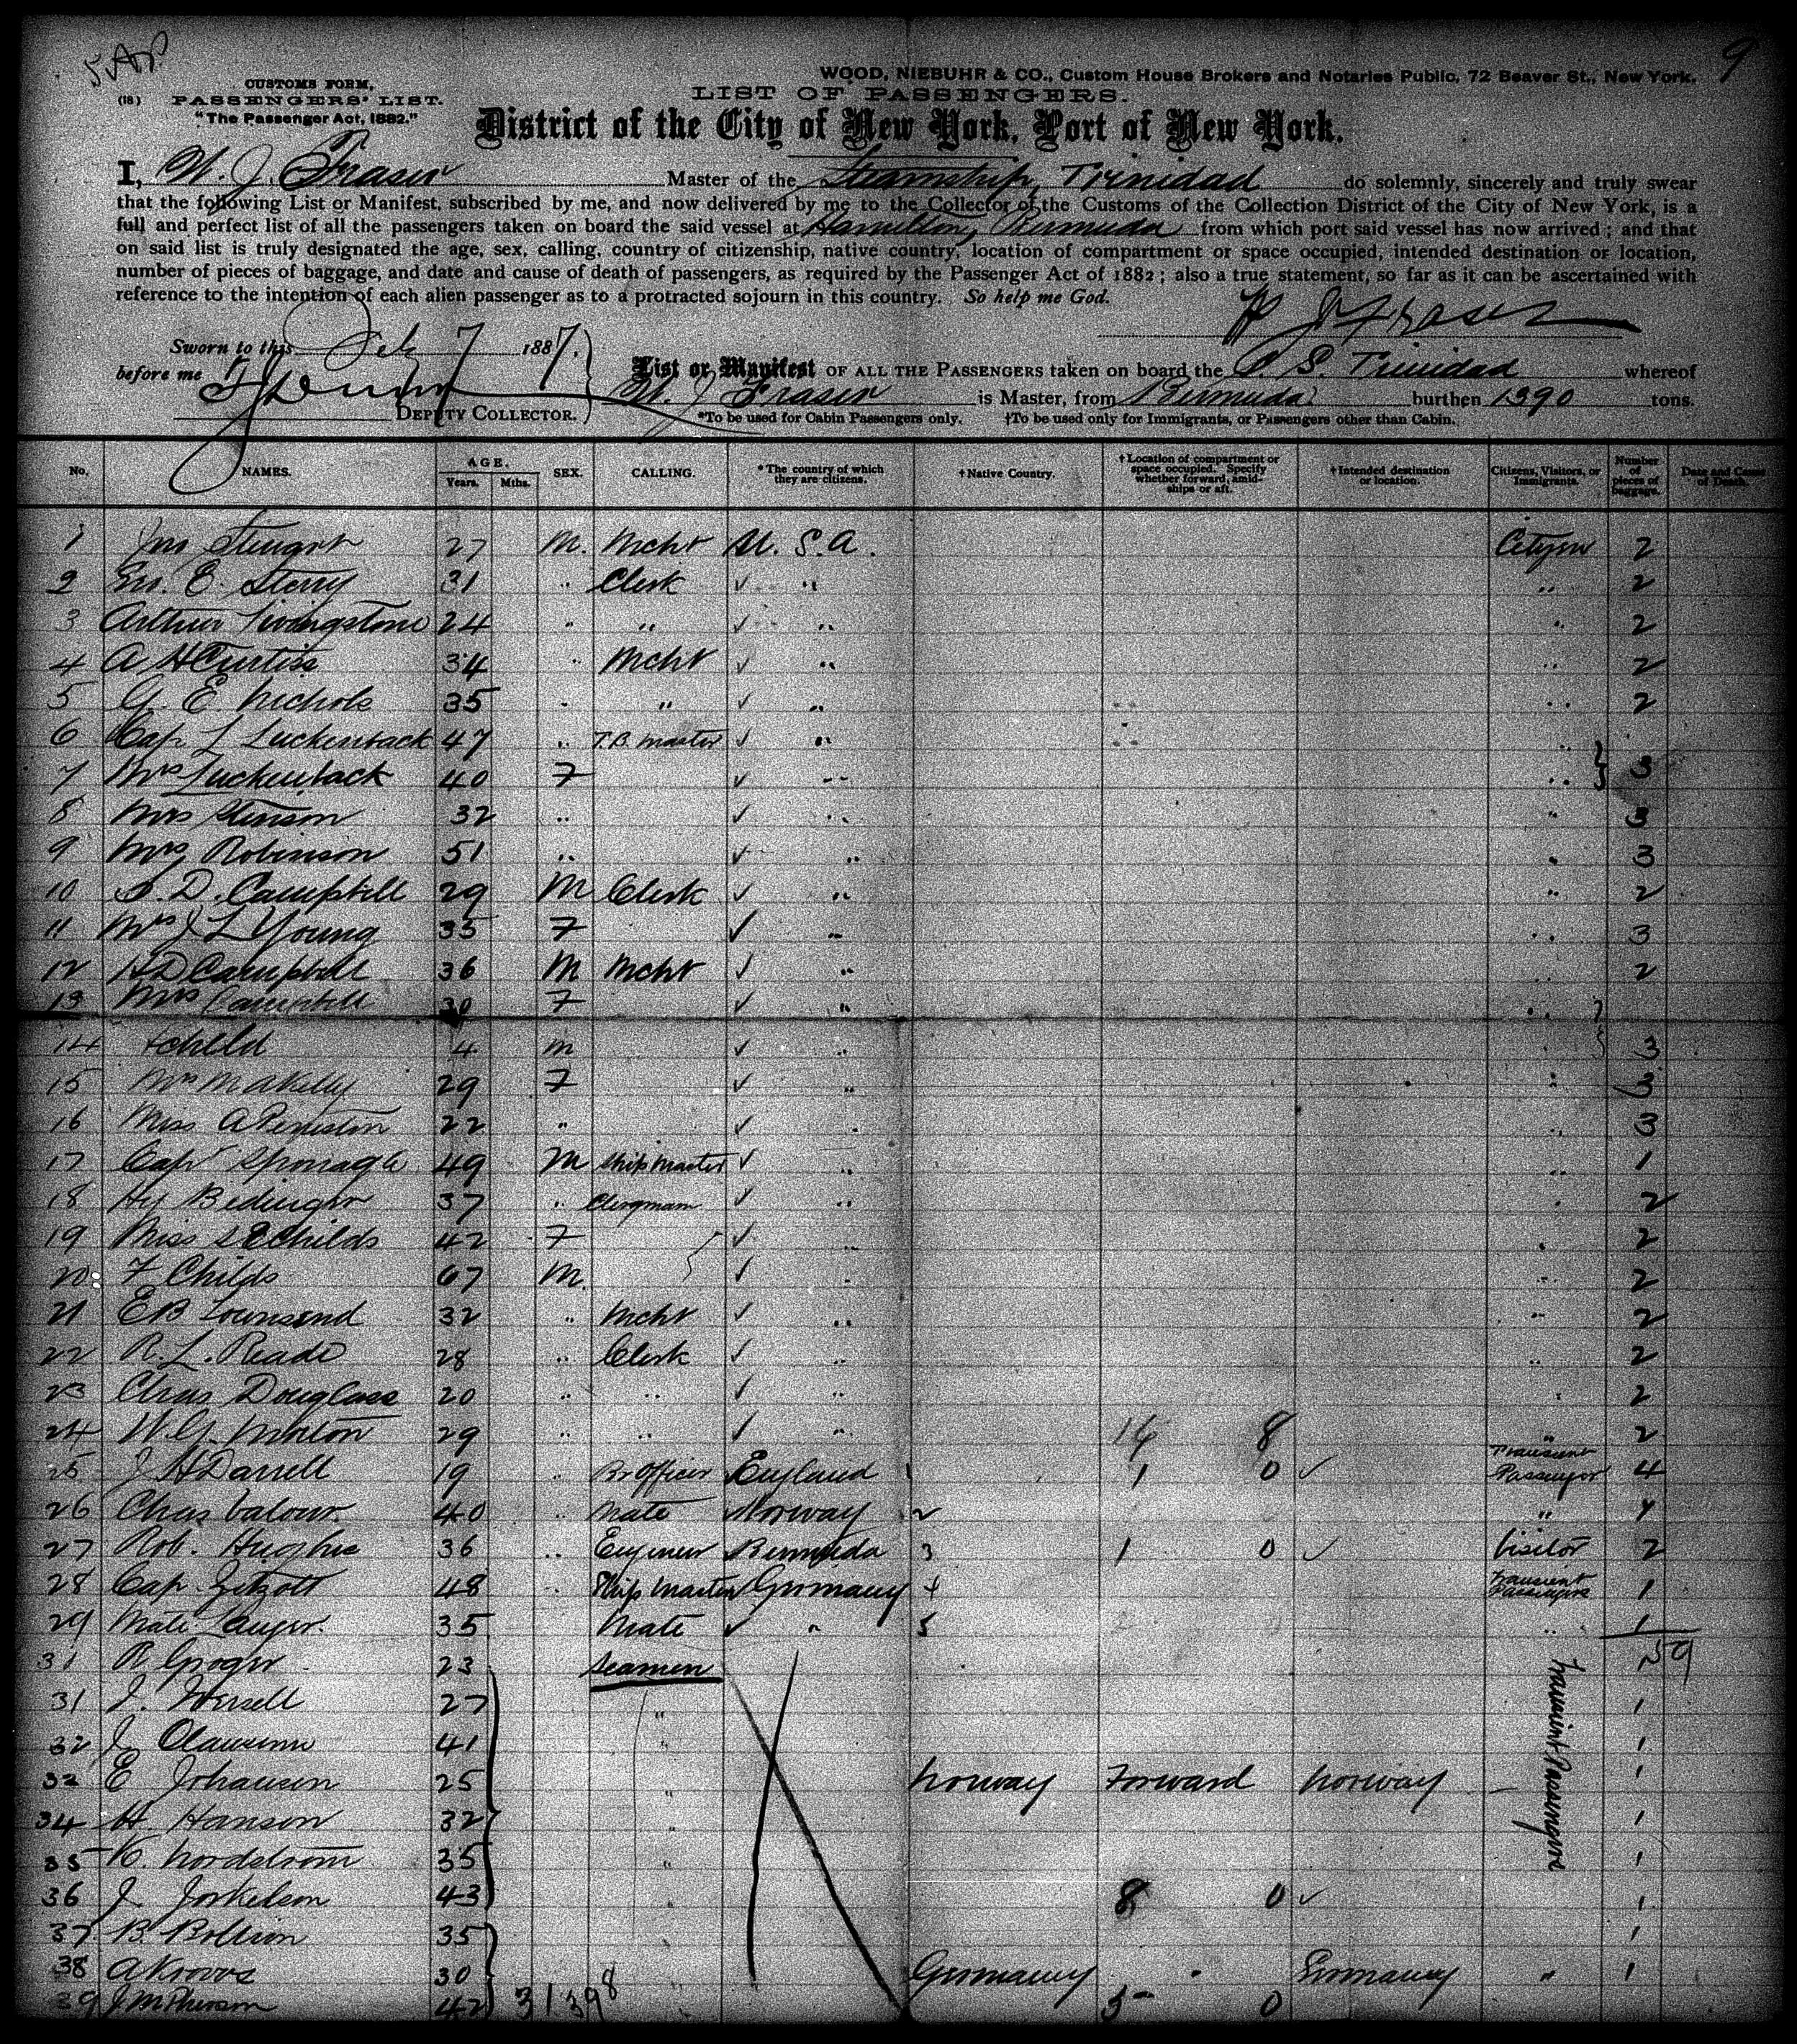 9
WOOD, NIEBUHR & CO., Custom House Brokers and Notaries Public, 72 Beaver St., New York.
CUSTOMS FORM,
(18) PASSENGERS' LIST.
"The Passenger Act, 1882."
LIST OF PASSENGERS.
District of the City of New York, Port of New York.
I, W. J. Fraser Master of the Steamship Trinidad do solemnly, sincerely and truly swear
that the following List or Manifest, subscribed by me, and now delivered by me to the Collector of the Customs of the Collection District of the City of New York, is a
full and perfect list of all the passengers taken on board the said vessel at Hamilton, Bermuda from which port said vessel has now arrived; and that
on said list is truly designated the age, sex, calling, country of citizenship, native country, location of compartment or space occupied, intended destination or location,
number of pieces of baggage, and date and cause of death of passengers, as required by the Passenger Act of 1882; also a true statement, so far as it can be ascertained with
reference to the intention of each alien passenger as to a protracted sojourn in this country. So help me God.
W J Fraser
Sworn to this Feb 7 1887.
before me
DEPUTY COLLECTOR.
List or Manifest OF ALL THE PASSENGERS taken on board the S. S. Trinidad whereof
W. J Fraser is Master, from Bermuda burthen 1390 tons.
*To be used for Cabin Passengers only. †To be used only for Immigrants, or Passengers other than Cabin.
No. NAMES. AGE. Years. Mths. SEX. CALLING. *The country of which they are citizens. †Native Country. †Location of compartment or space occupied. Specify whether forward, amidships or aft. †Intended destination or location. Citizens, Visitors, or Immigrants. Number of pieces of baggage. Date and Cause of Death.
1 Jno Stewart 27 M. Mcht U. S. A. Citizen 2
2 Geo. E. Sterry 31 " Clerk ✓ " " 2
3 Arthur Livingstone 24 " " ✓ " " 2
4 A H Curtiss 34 " Mcht ✓ " " 2
5 G. E. Nichols 35 " " ✓ " " 2
6 Cap L Luckenback 47 " T.B. Master ✓ " "
7 Mrs Luckenback 40 F ✓ " " 3
8 Mrs Stinson 32 " ✓ " " 3
9 Mrs Robinson 51 " ✓ " " 3
10 S. D. Campbell 29 M Clerk ✓ " " 2
11 Mrs J L Young 35 F ✓ " " 3
12 H D Campbell 36 M Mcht ✓ " " 2
13 Mrs Campbell 30 F ✓ " "
14 + child 4 M ✓ " 3
15 Mrs M A Kelly 29 F ✓ " " 3
16 Miss A Peniston 22 " ✓ " " 3
17 Capt Sponagle 49 M Ship Master ✓ " " 1
18 Hy Bedinger 37 " Clergman ✓ " " 2
19 Miss S E Childs 42 F ✓ " " 2
20 F Childs 67 M. ✓ " " 2
21 E B Townsend 32 " Mcht ✓ " " 2
22 R. L. Reade 28 " Clerk ✓ " " 2
23 Chas Douglass 20 " " ✓ " " 2
24 W. G. Morton 29 " " ✓ " 8 " 2
25 J H Darrell 19 " Br Officer England 1 1 0 ✓ Transient Passenger 4
26 Chas 40 " Mate Norway 2 "
27 Rob. Hughes 36 " Engineer Bermuda 3 1 0 ✓ Visitor 2
28 Cap 48 " Ship Master Germany 4 Transient Passengers 1
29 Mate 35 Mate ✓ " 5 " 1
59
31 R Groger 23 Seamen
31 J. 27 " 1
32 J. 41 " 1
32 E Johansen 25 " Norway Forward Norway Transient Passengers 1
34 H. Hanson 32 " 1
35 K. Nordstrom 35 " 1
36 J. 43 " 8 0 ✓ 1
37 B. 35 " 1
38 A 30 Germany " Germany " 1
39 J McPherson 42 " 5 0